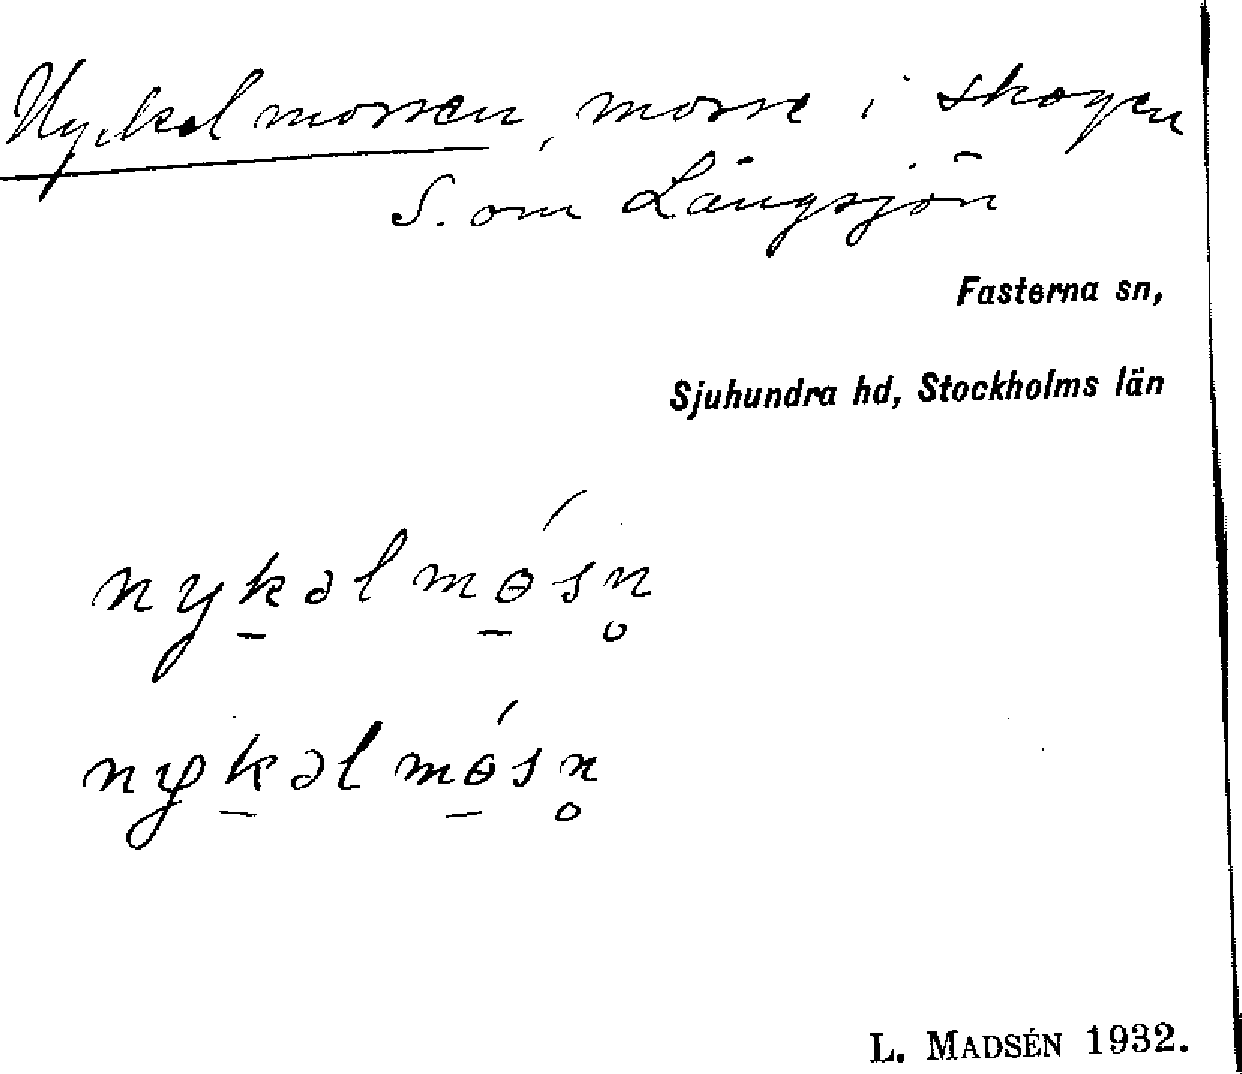 Nyckelmossen, mosse i skogen
S. om Långsjön
Fasterna sn,
Sjuhundra hd, Stockholms län
nyk̠əlmɵ̠́sn̥
nyk̠əlmɵ̠́sn̥
L. MADSÉN 1932.